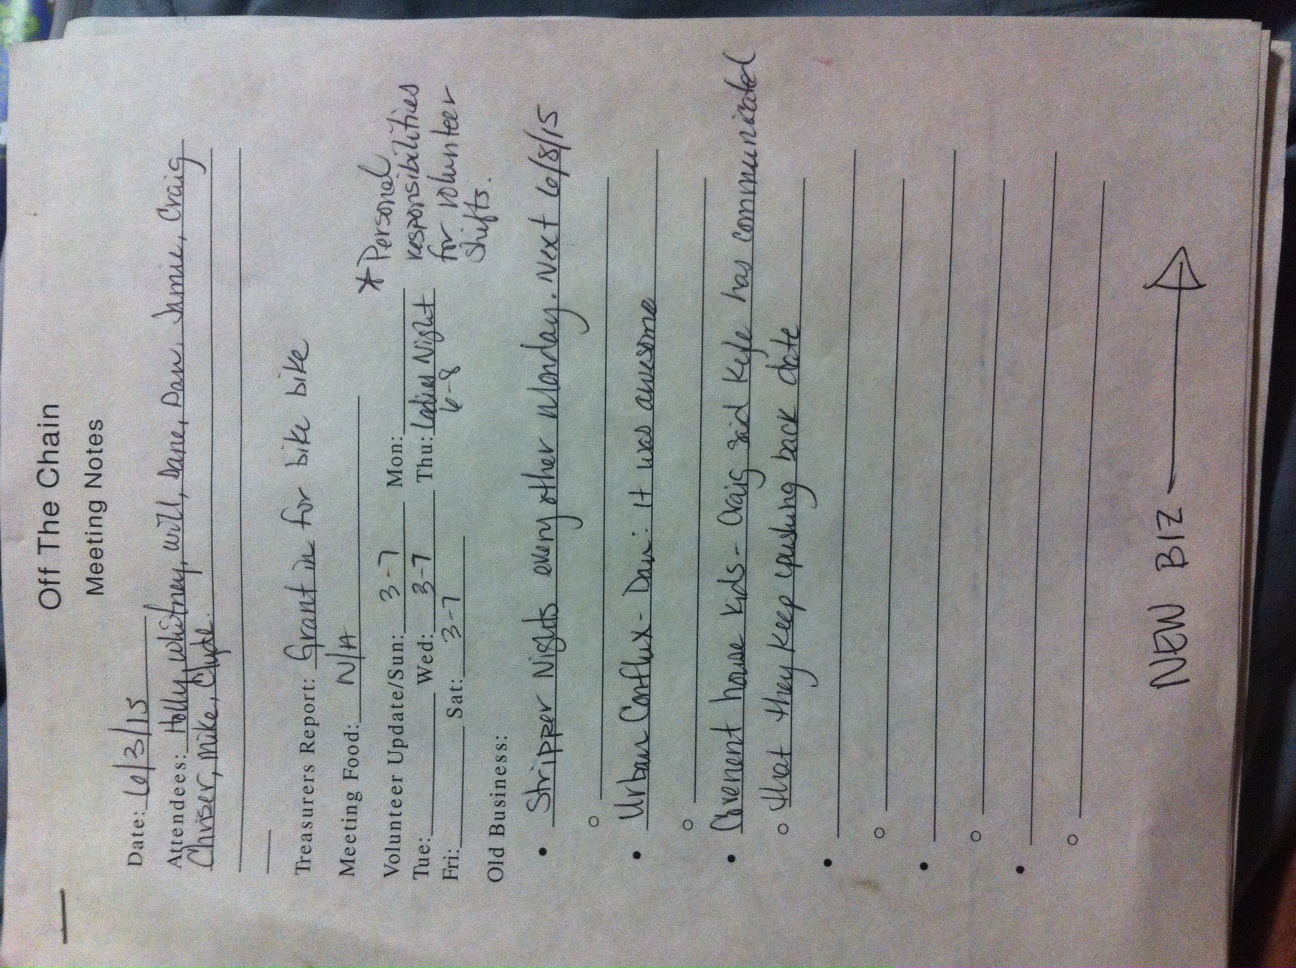 Off The Chain
Meeting Notes
Date: 6/3/15
Attendees: Holly, Whitney, Will, Dane, Dan, Jamie, Craig
Chriser, Mike, Clyde.
Treasurers Report: Grant in for bike bike
Meeting Food: N/A
Volunteer Update/Sun: 3-7 Mon:
Tue: Wed: 3-7 Thu: Ladies Night
6-8
Fri: Sat: 3-7
* Personal
responsibilities
for volunteer
shifts.
Old Business:
• Stripper Nights every other Monday. Next 6/8/15
• Urban Conflux - Dan: It was awesome
• Covenent house kids - Craig said Kyfe has communicated
○ that they keep pushing back date
NEW BIZ →